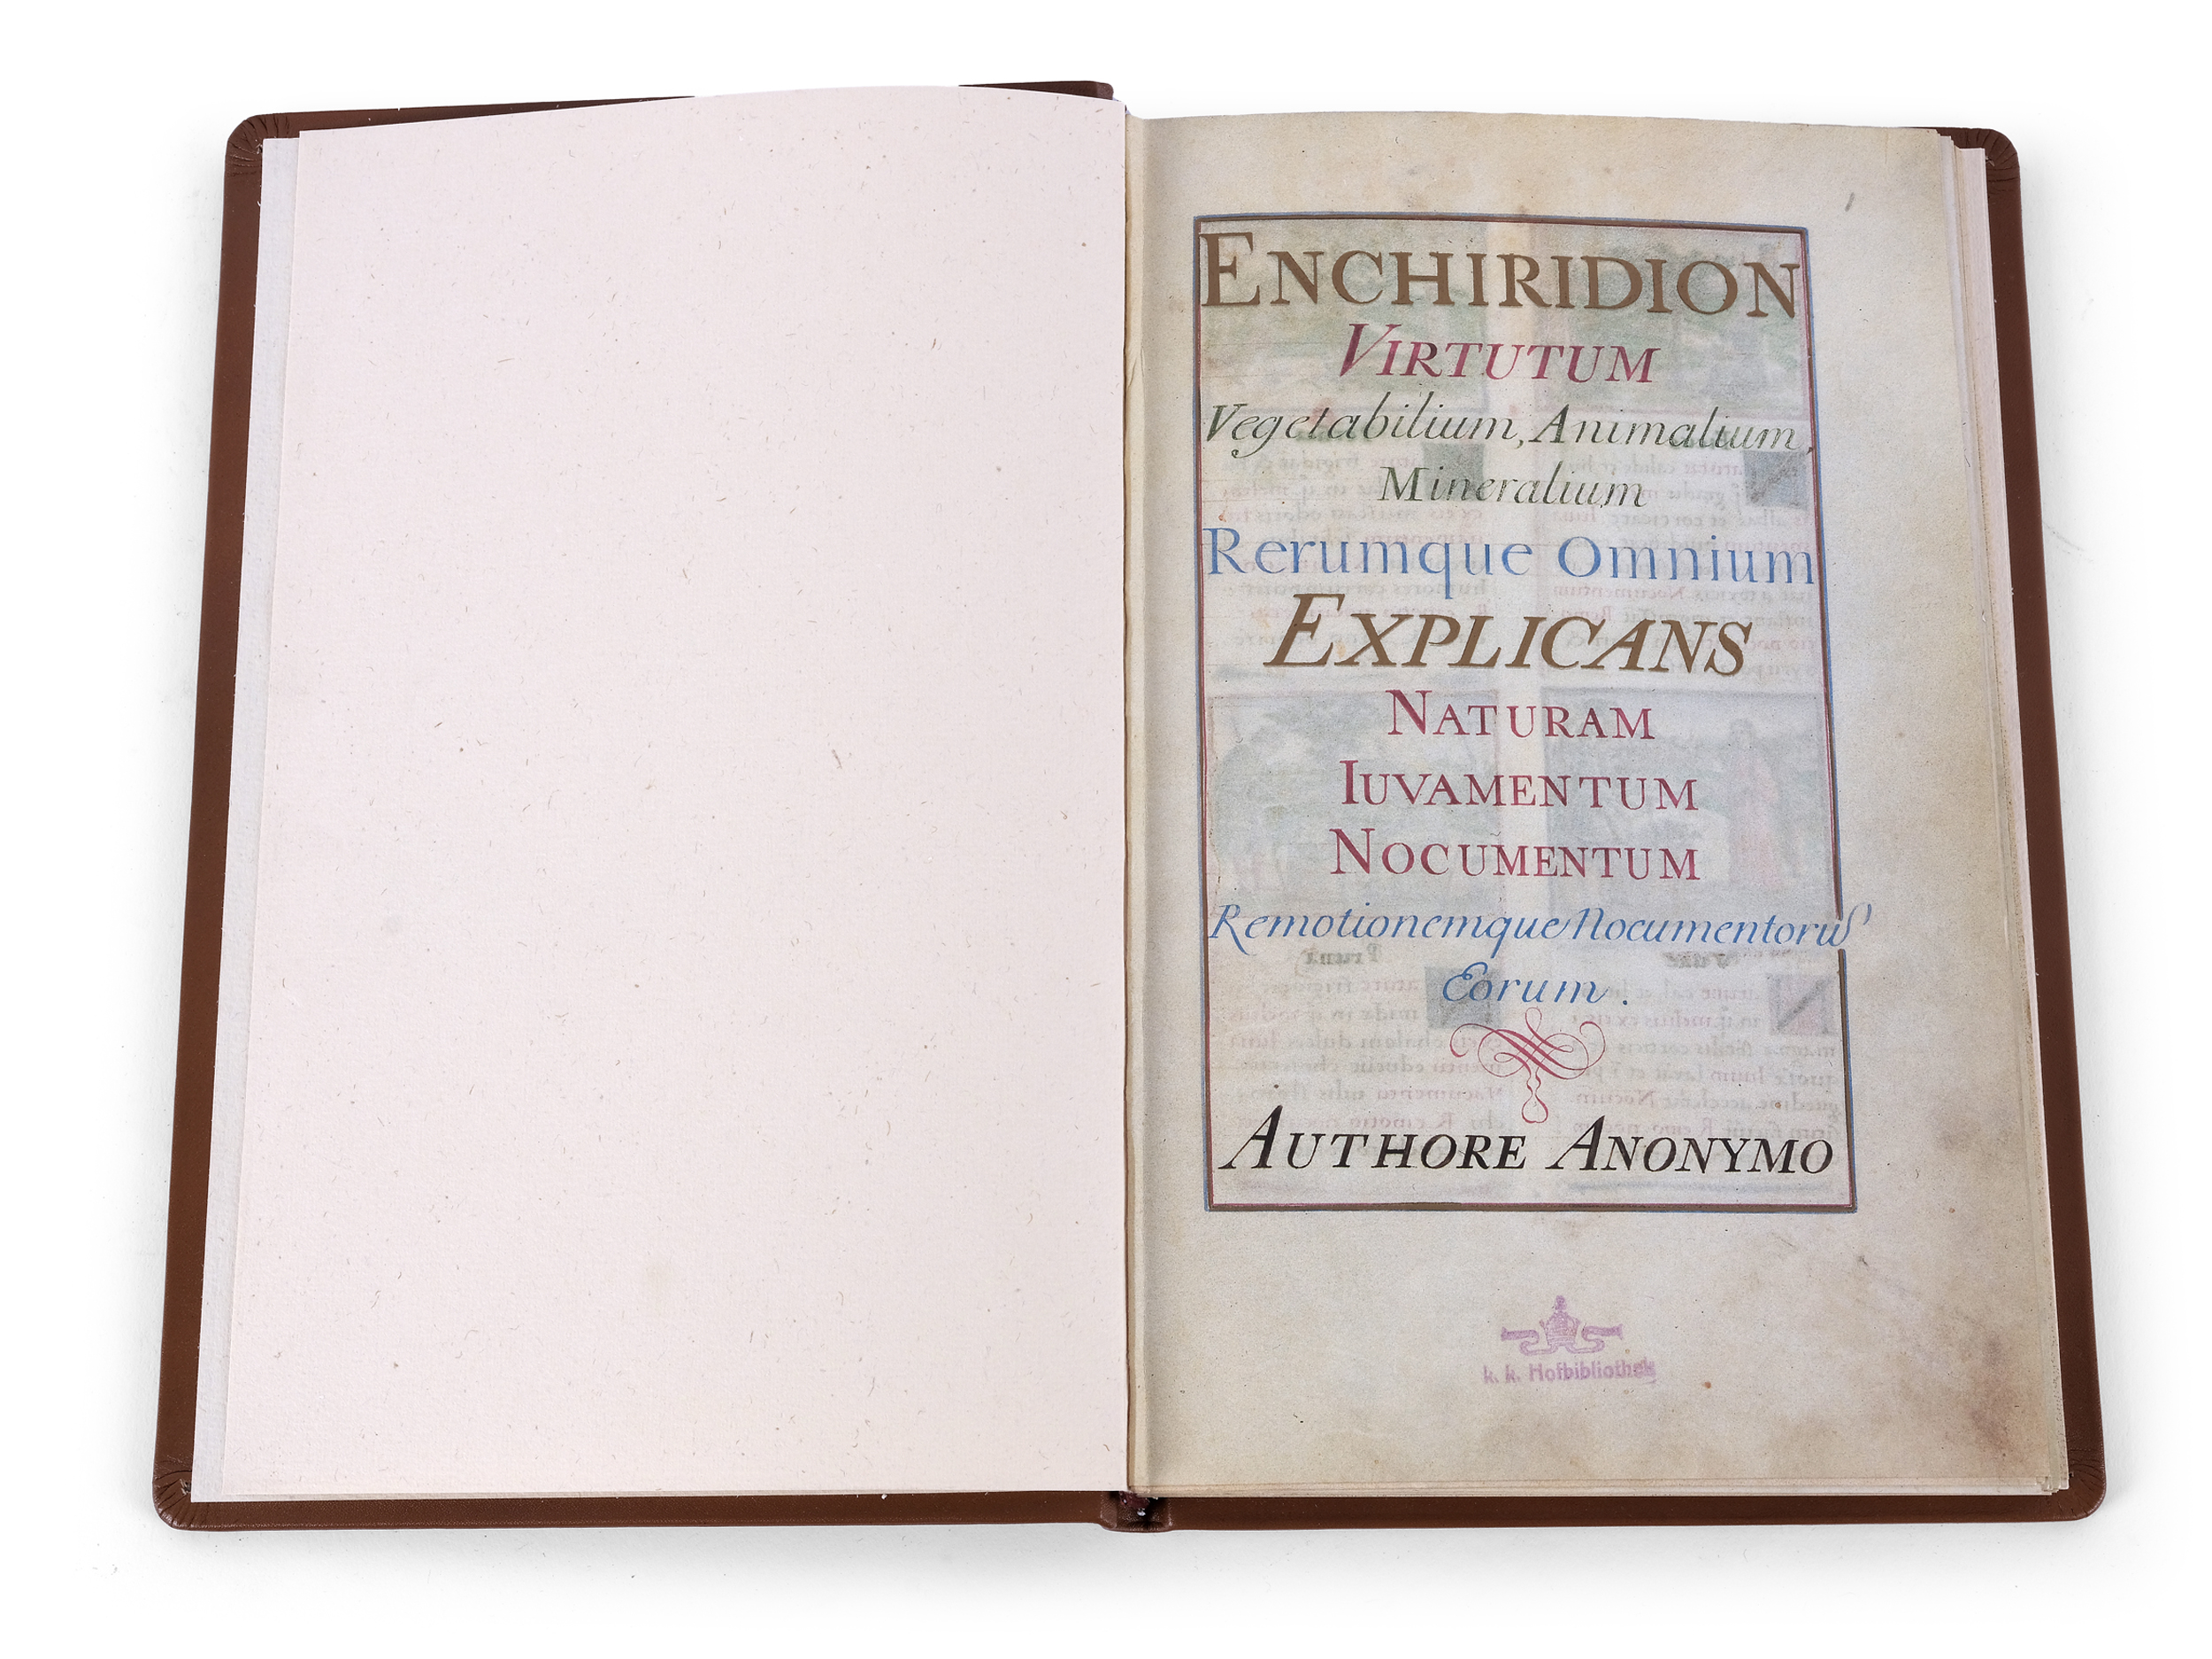 ENCHIRIDION
VIRTUTUM
Vegetabilium, Animalium,
Mineralium
Rerumque Omnium
EXPLICANS
NATURAM
IUVAMENTUM
NOCUMENTUM
Remotionemque Nocumentorũ
Eorum.
AUTHORE ANONYMO
k. k. Hofbibliothek